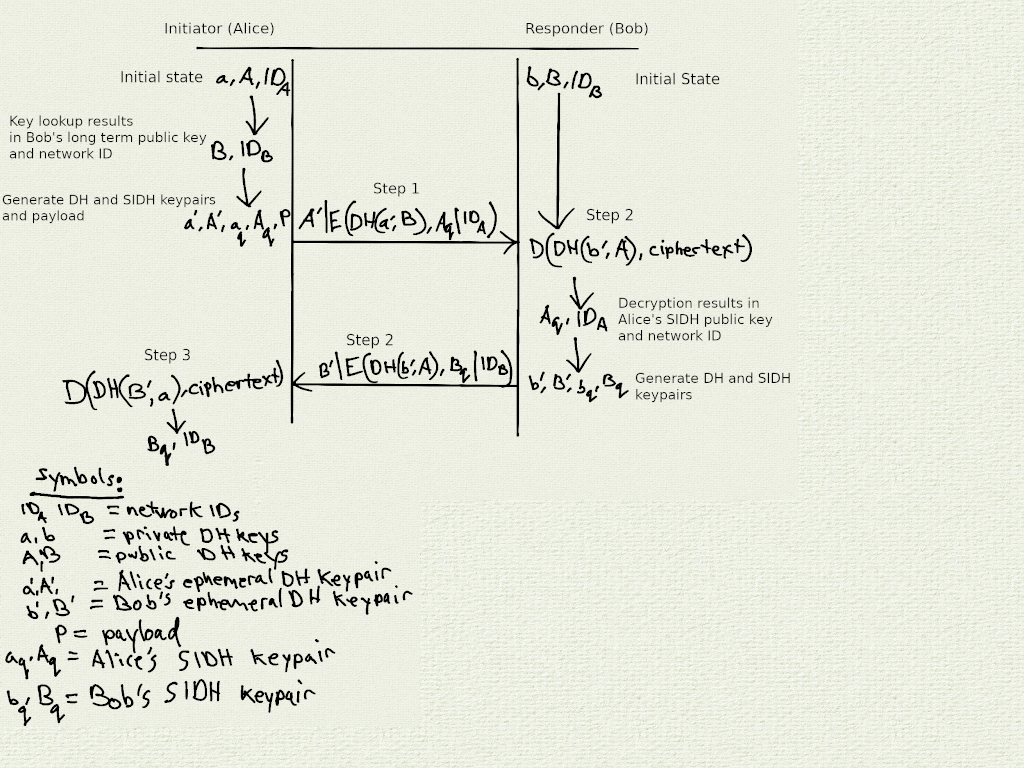 Initiator (Alice)
Responder (Bob)
Initial state a, A, ID_A
b, B, ID_B Initial State
Key lookup results
in Bob's long term public key
and network ID
B, ID_B
Generate DH and SIDH keypairs
and payload
a', A', a_q, A_q, P
Step 1
A'|E(DH(a', B), A_q|ID_A)
Step 2
D(DH(b', A'), ciphertext)
A_q, ID_A
Decryption results in
Alice's SIDH public key
and network ID
b', B', b_q, B_q
Generate DH and SIDH
keypairs
Step 2
B'|E(DH(b', A), B_q|ID_B)
Step 3
D(DH(B', a), ciphertext)
B_q, ID_B
Symbols:
ID_A ID_B = network IDs
a, b = private DH keys
A, B = public DH keys
a', A', = Alice's ephemeral DH Keypair
b', B' = Bob's ephemeral DH Keypair
P = payload
a_q, A_q = Alice's SIDH keypair
b_q, B_q = Bob's SIDH keypair